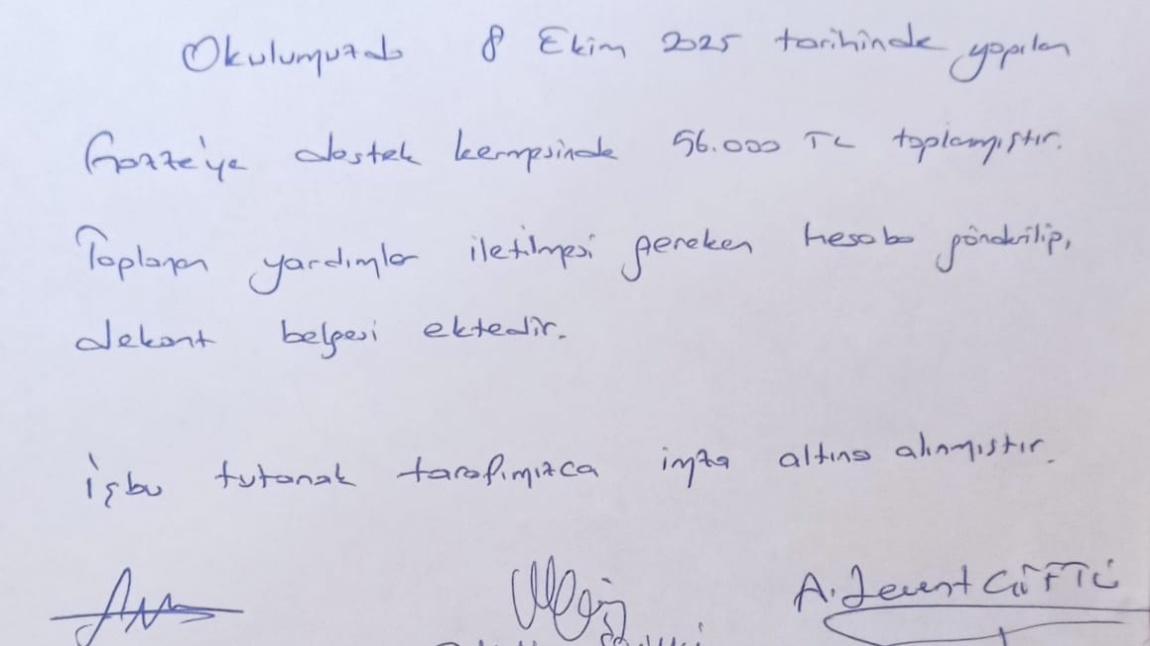 Okulumuzda 8 Ekim 2025 tarihinde yapılan
Gazze'ye destek kermesinde 56.000 TL toplanmıştır.
Toplanan yardımlar iletilmesi gereken hesaba gönderilip,
dekont belgesi ektedir.
İşbu tutanak tarafımızca imza altına alınmıştır.
A. Levent ÇİFTÇİ